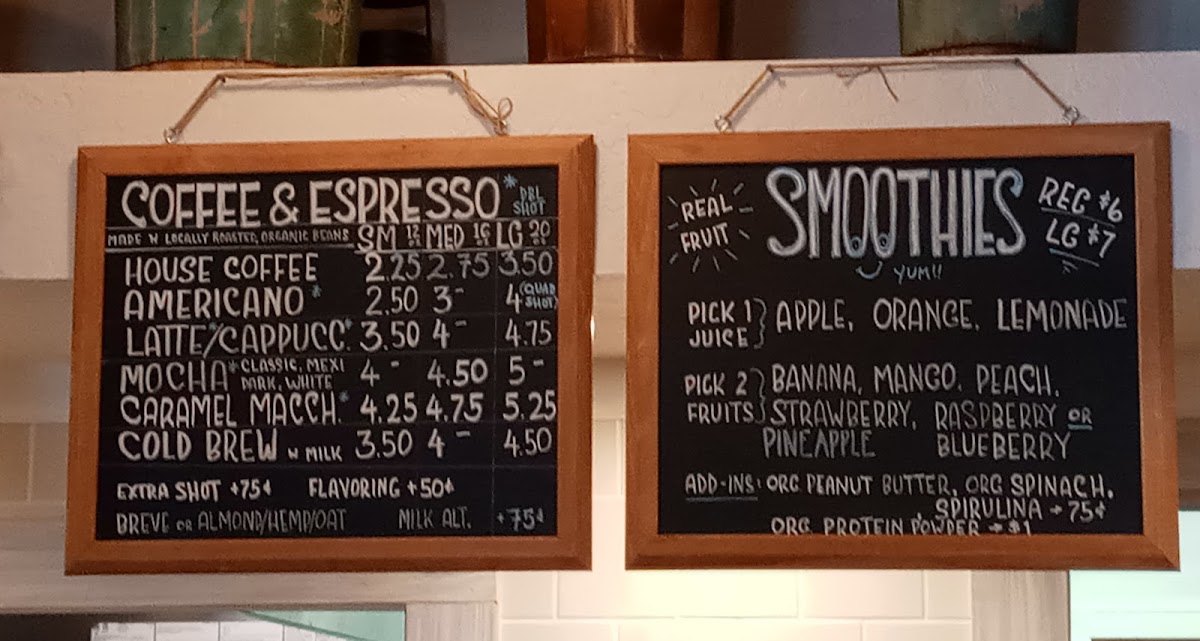 COFFEE & ESPRESSO * DBL SHOT
MADE W LOCALLY ROASTED, ORGANIC BEANS SM 12 oz MED 16 oz LG 20 oz
HOUSE COFFEE 2.25 2.75 3.50
AMERICANO * 2.50 3- 4 (QUAD SHOT)
LATTE*/CAPPUCC.* 3.50 4- 4.75
MOCHA * CLASSIC, MEXI DARK, WHITE 4- 4.50 5-
CARAMEL MACCH.* 4.25 4.75 5.25
COLD BREW W MILK 3.50 4- 4.50
EXTRA SHOT +75¢ FLAVORING +50¢
BREVE OR ALMOND/HEMP/OAT MILK ALT. +75¢
REAL FRUIT
SMOOTHIES
REG $6
LG $7
YUM!!
PICK 1 JUICE } APPLE, ORANGE, LEMONADE
PICK 2 FRUITS } BANANA, MANGO, PEACH,
STRAWBERRY, RASPBERRY OR
PINEAPPLE BLUEBERRY
ADD-INS: ORG PEANUT BUTTER, ORG SPINACH,
SPIRULINA → 75¢
ORG PROTEIN POWDER → $1